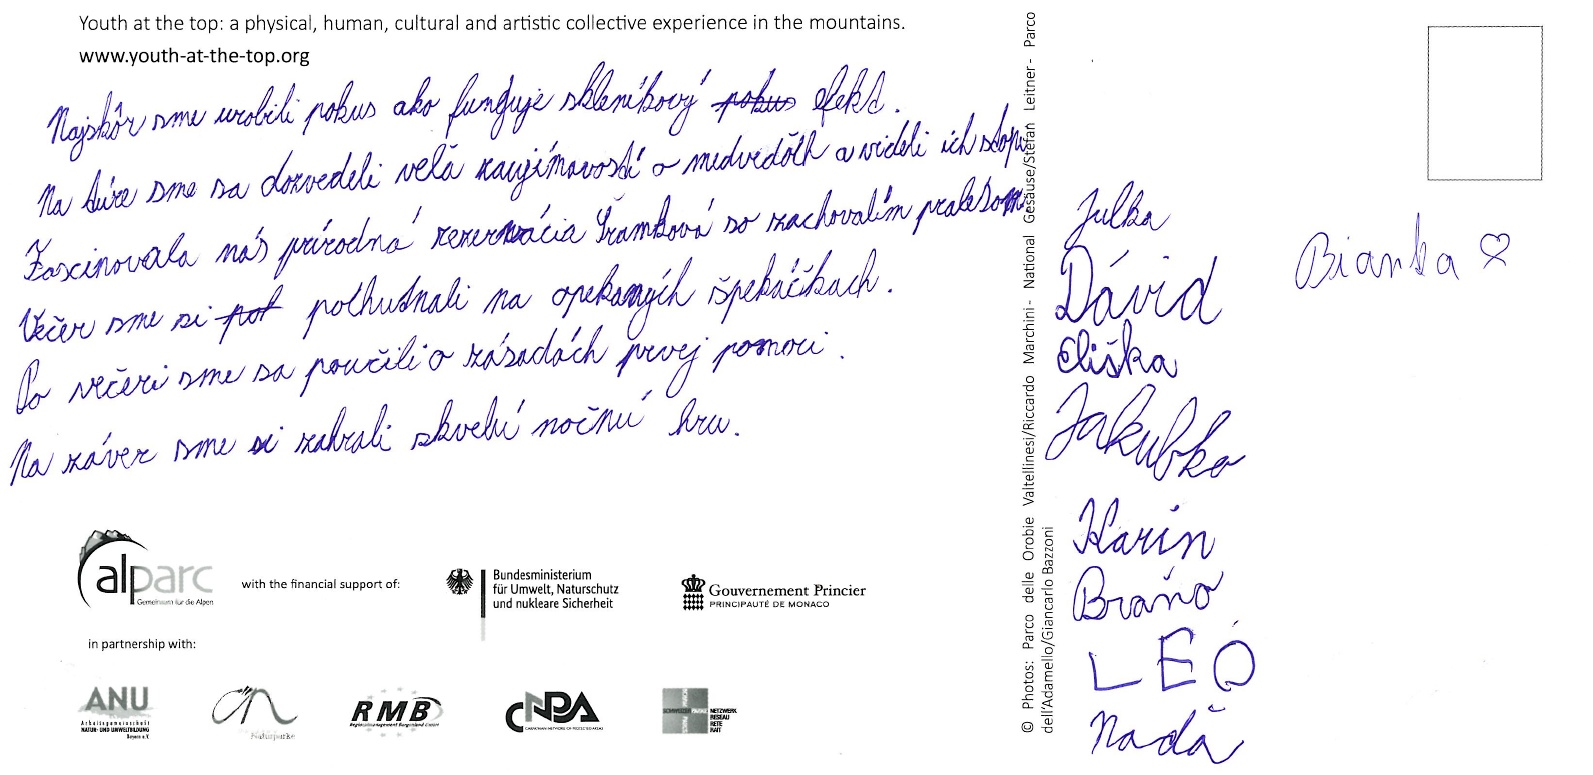 Youth at the top: a physical, human, cultural and artistic collective experience in the mountains.
www.youth-at-the-top.org
Najskôr sme urobili pokus ako funguje skleníkový pokus efekt.
Na túre sme sa dozvedeli veľa zaujímavostí o medveďoch a videli ich stopu.
Fascinovala nás prírodná rezervácia Šramková so zachovalím pralesom.
Večer sme si pot pochutnali na opekaných špekáčikach.
Po večeri sme sa poučili o zásadách prvej pomoci.
Na záver sme si zahrali skvelú nočnú hru.
alparc
Gemeinsam für die Alpen
with the financial support of:
Bundesministerium
für Umwelt, Naturschutz
und nukleare Sicherheit
Gouvernement Princier
PRINCIPAUTÉ DE MONACO
in partnership with:
ANU
Arbeitsgemeinschaft
NATUR- UND UMWELTBILDUNG
Bayern e.V.
Naturparke
RMB
Regionalmanagement Burgenland GmbH
CNPA
CARPATHIAN NETWORK OF PROTECTED AREAS
NETZWERK
RESEAU
RETE
RAIT
© Photos: Parco delle Orobie Valtellinesi/Riccardo Marchini- National Gesäuse/Stefan Leitner- Parco
dell'Adamello/Giancarlo Bazzoni
Julka
Dávid
Eliška
Jakubko
Karin
Braňo
LEO
Naďa
Bianka